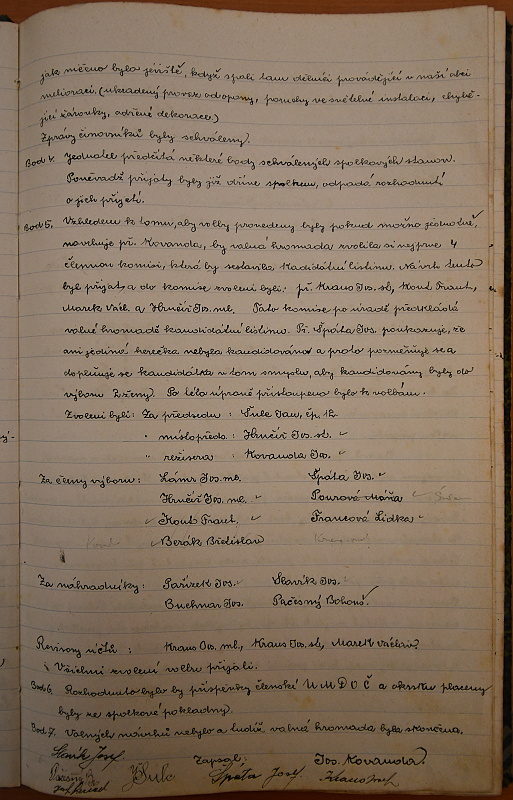 jak měčno bylo jeviště, když spali tam dělníci provádějící v naší obci
melioraci. (ukradený provaz od opony, poruchy ve světelné instalaci, chybě-
jící žárovky, odřené dekorace.)
Zprávy činovníků byly schváleny.
Bod 4. Jednatel předčítá některé body schválených spolkových stanov.
Poněvadž přijaty byly již dříve spolkem, odpadá rozhodnutí
o jich přijetí.
Bod 5. Vzhledem k tomu, aby volby provedeny byly pokud možno jednotně,
navrhuje př. Kovanda, by valná hromada zvolila si nejprve 4
člennou komisi, která by sestavila kadidátní listinu. Návrh tento
byl přijat a do komise zvoleni byli: př. Kraus Jos. st., Kout Frant.,
Marek Václ. a Hrnčíř Jos. ml. Tato komise po úradě předkládá
valné hromadě kandidátní listinu. Př. Špáta Jos. poukazuje, že
ani jediná herečka nebyla kandidována a proto pozměňuje se a
doplňuje se kandidátka v tom smyslu, aby kandidovány byly do
výboru 2 ženy. Po této úpravě přistoupeno bylo k volbám.
Zvoleni byli: Za předsedu: Šulc Jan, čp. 12
" místopředs.: Hrnčíř Jos. st.
" režisera: Kovanda Jos.
Za členy výboru: Jos. ml. Špáta Jos.
Hrnčíř Jos. ml. Pourová Máňa
Kout Frant. Francová Lidka
Berák Břetislav
Za náhradníky: Pařízek Jos. Slavík Jos.
Buchnar Jos. Pačesný Bohouš.
Revisory účtů: Kraus Jos. ml., Kraus Jos. st., Marek Václav.
Všichni zvolení volbu přijali.
Bod 6. Rozhodnuto bylo by příspěvky členské ÚMDOČ a okrsku placeny
byly ze spolkové pokladny.
Bod 7. Volných návrhů nebylo a tudíž valná hromada byla skončena.
Slavík Josef Zapsal: Jos. Kovanda.
JŠulc Špáta Josef Kraus Josef